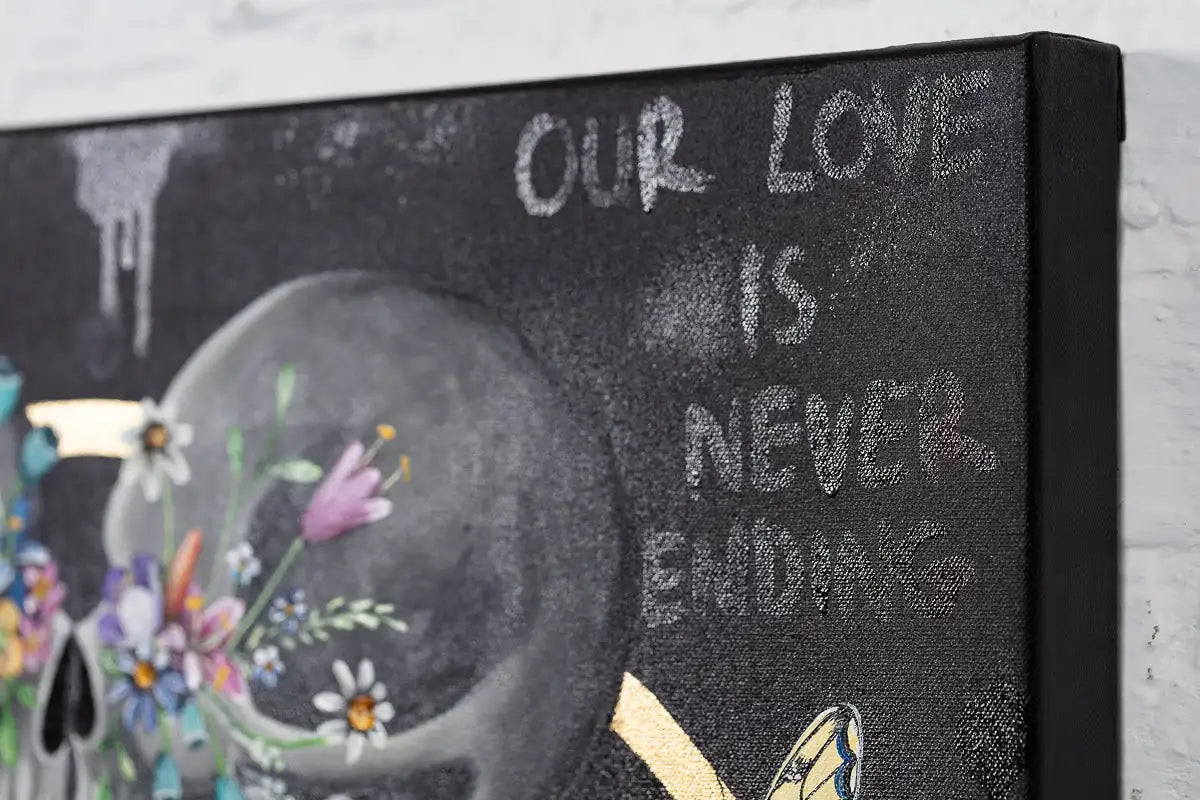 OUR LOVE
IS
NEVER
ENDING